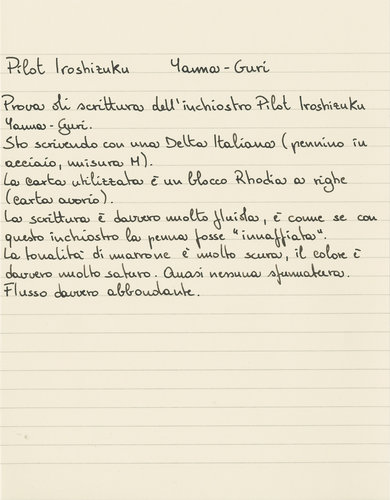 Pilot Iroshizuku Yama-Guri
Prova di scrittura dell'inchiostro Pilot Iroshizuku
Yama-Guri.
Sto scrivendo con una Delta Italiana (pennino in
acciaio, misura M).
La carta utilizzata è un blocco Rhodia a righe
(carta avorio).
La scrittura è davvero molto fluida, è come se con
questo inchiostro la penna fosse "innaffiata".
La tonalità di marrone è molto scura, il colore è
davvero molto saturo. Quasi nessuna sfumatura.
Flusso davvero abbondante.